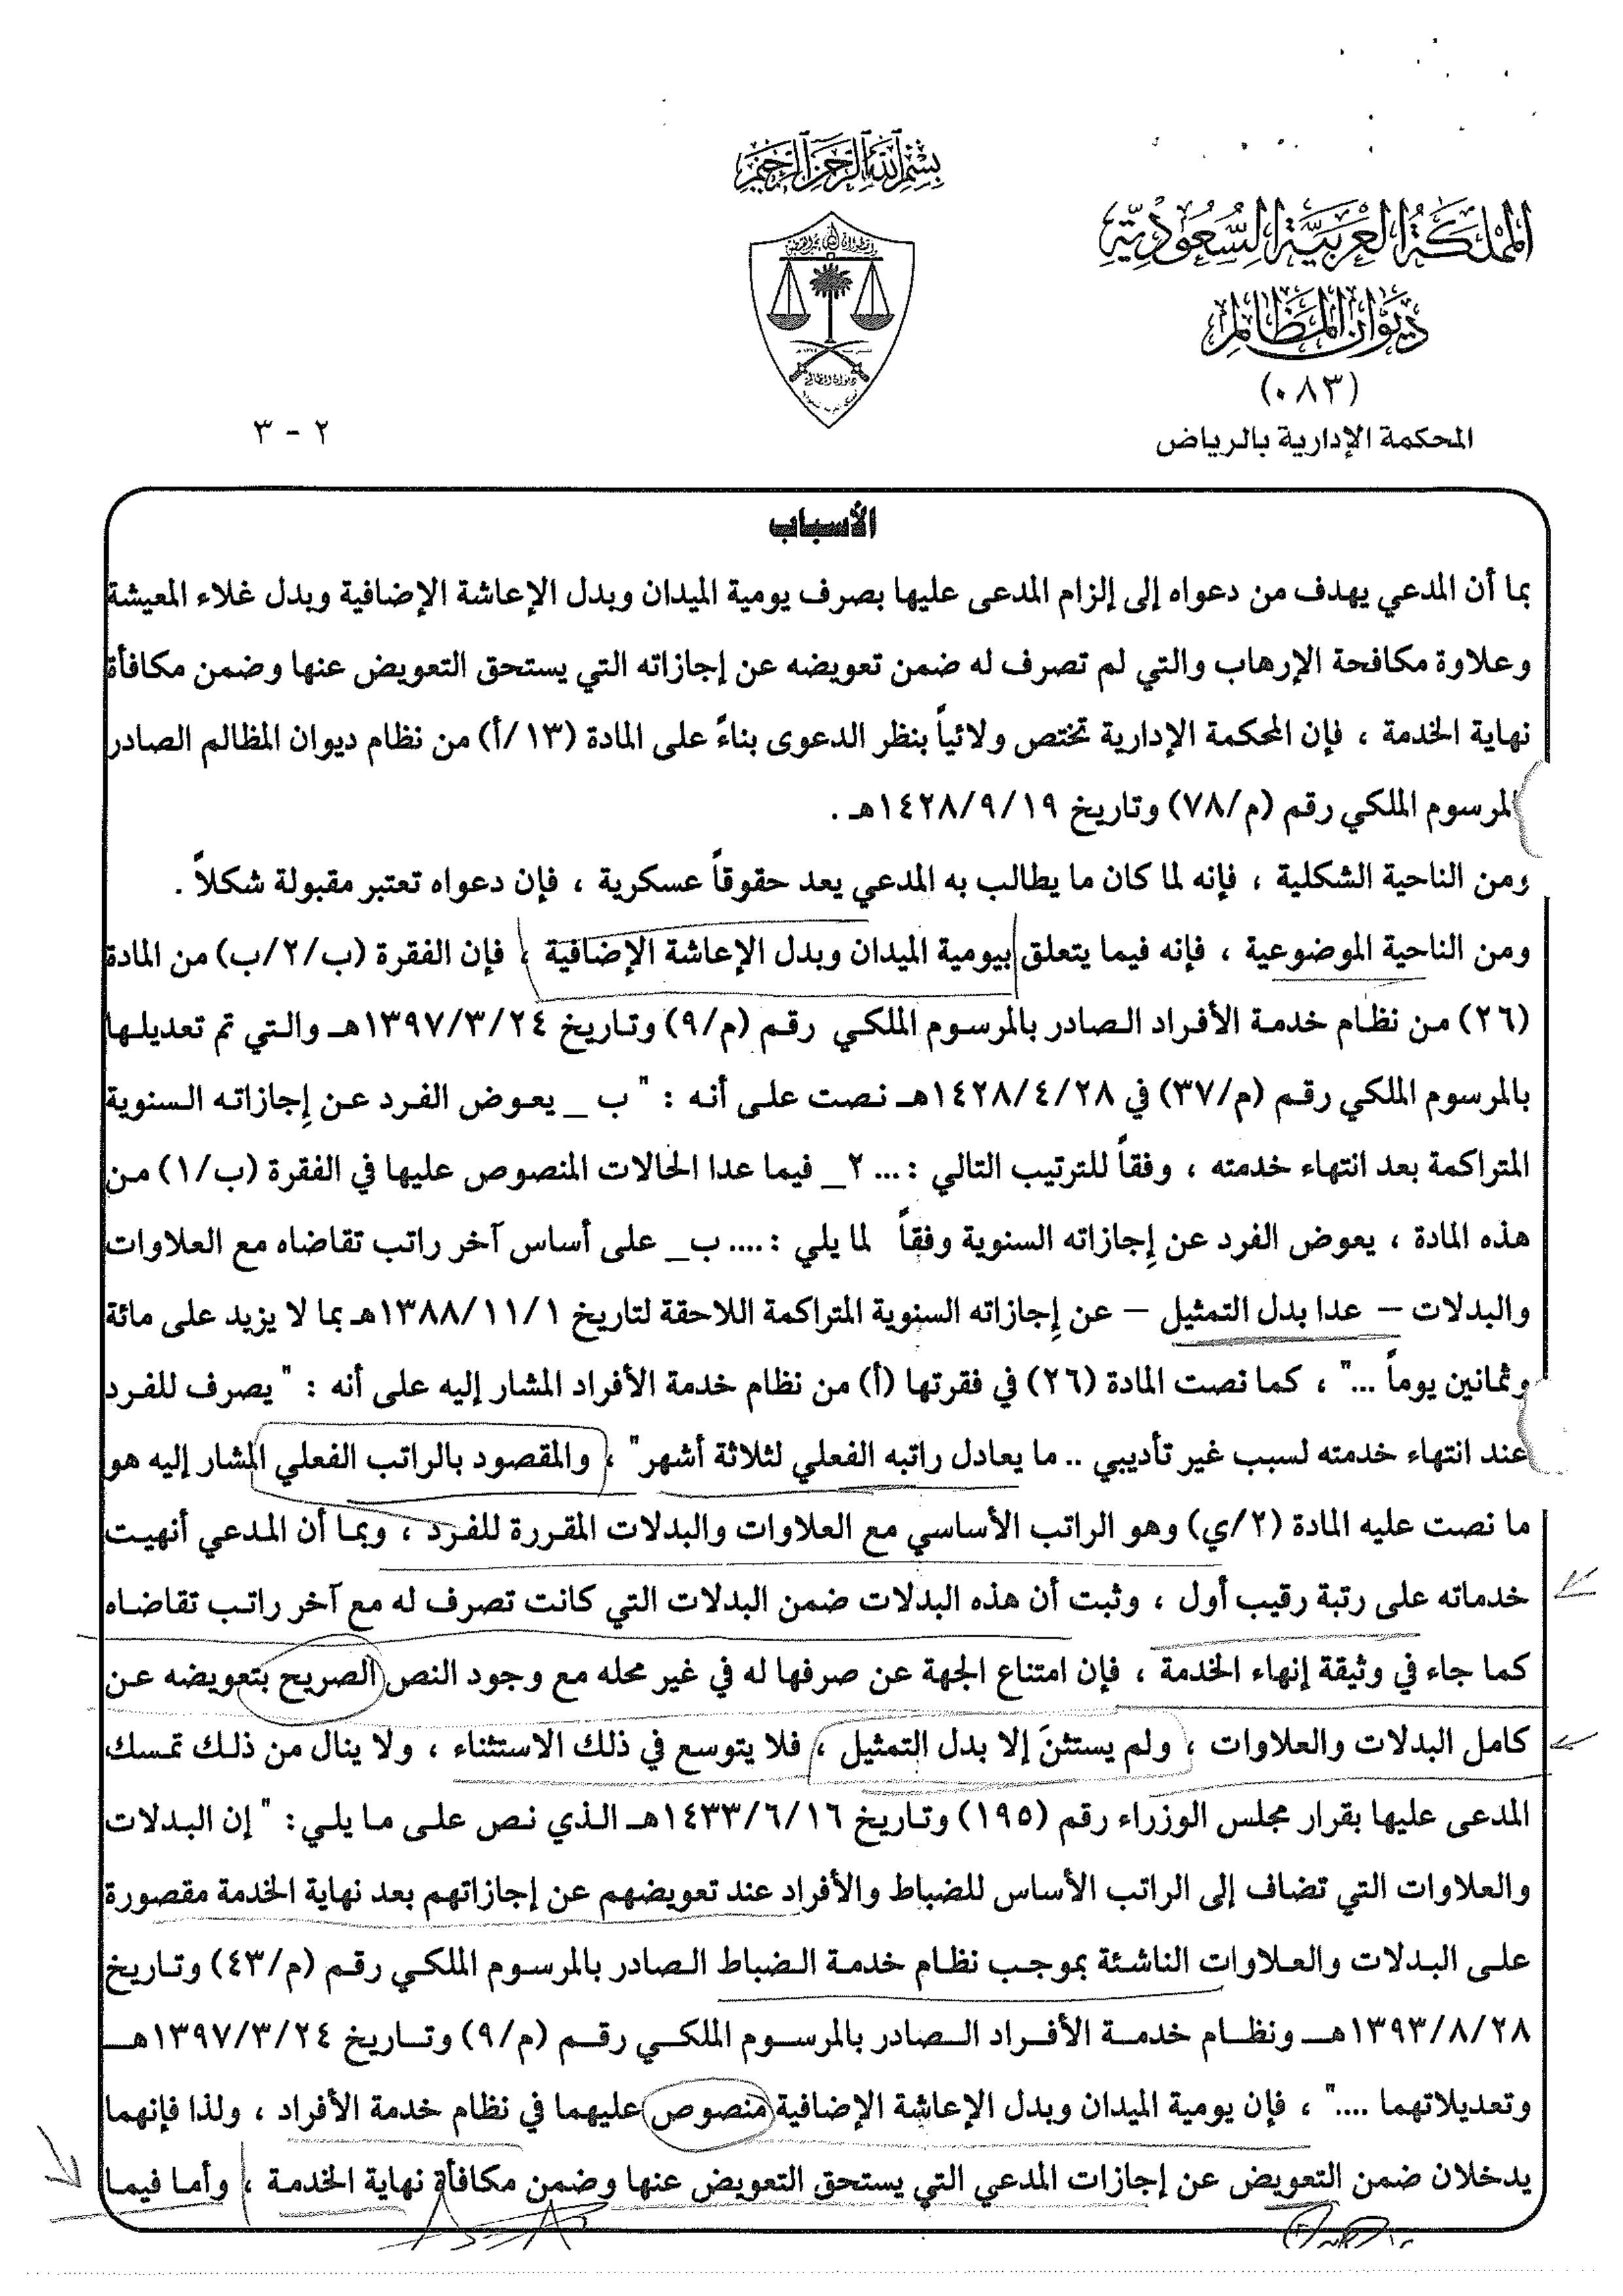 بسم الله الرحمن الرحيم
المملكة العربية السعودية
ديوان المظالم
(٠٨٣)
المحكمة الإدارية بالرياض
٢ - ٣
الأسباب
بما أن المدعي يهدف من دعواه إلى إلزام المدعى عليها بصرف يومية الميدان وبدل الإعاشة الإضافية وبدل غلاء المعيشة
وعلاوة مكافحة الإرهاب والتي لم تصرف له ضمن تعويضه عن إجازاته التي يستحق التعويض عنها وضمن مكافأة
نهاية الخدمة ، فإن المحكمة الإدارية تختص ولائياً بنظر الدعوى بناءً على المادة (١٣/أ) من نظام ديوان المظالم الصادر
المرسوم الملكي رقم (م/٧٨) وتاريخ ١٤٢٨/٩/١٩هـ .
ومن الناحية الشكلية ، فإنه لما كان ما يطالب به المدعي يعد حقوقاً عسكرية ، فإن دعواه تعتبر مقبولة شكلاً .
ومن الناحية الموضوعية ، فإنه فيما يتعلق بيومية الميدان وبدل الإعاشة الإضافية ، فإن الفقرة (ب/٢/ب) من المادة
(٢٦) من نظام خدمة الأفراد الصادر بالمرسوم الملكي رقم (م/٩) وتاريخ ١٣٩٧/٣/٢٤هـ والتي تم تعديلها
بالمرسوم الملكي رقم (م/٣٧) في ١٤٢٨/٤/٢٨هـ نصت على أنه : " ب _ يعوض الفرد عن إجازاته السنوية
المتراكمة بعد انتهاء خدمته ، وفقاً للترتيب التالي :... ٢_ فيما عدا الحالات المنصوص عليها في الفقرة (ب/١) من
هذه المادة ، يعوض الفرد عن إجازاته السنوية وفقاً لما يلي :.... ب_ على أساس آخر راتب تقاضاه مع العلاوات
والبدلات – عدا بدل التمثيل – عن إجازاته السنوية المتراكمة اللاحقة لتاريخ ١٣٨٨/١١/١هـ بما لا يزيد على مائة
وثمانين يوماً ..." ، كما نصت المادة (٢٦) في فقرتها (أ) من نظام خدمة الأفراد المشار إليه على أنه : " يصرف للفرد
عند انتهاء خدمته لسبب غير تأديبي .. ما يعادل راتبه الفعلي لثلاثة أشهر" ، والمقصود بالراتب الفعلي المشار إليه هو
ما نصت عليه المادة (٢/ي) وهو الراتب الأساسي مع العلاوات والبدلات المقررة للفرد ، وبما أن المدعي أنهيت
خدماته على رتبة رقيب أول ، وثبت أن هذه البدلات ضمن البدلات التي كانت تصرف له مع آخر راتب تقاضاه
كما جاء في وثيقة إنهاء الخدمة ، فإن امتناع الجهة عن صرفها له في غير محله مع وجود النص الصريح بتعويضه عن
كامل البدلات والعلاوات ، ولم يستثنَ إلا بدل التمثيل ، فلا يتوسع في ذلك الاستثناء ، ولا ينال من ذلك تمسك
المدعى عليها بقرار مجلس الوزراء رقم (١٩٥) وتاريخ ١٤٣٣/٦/١٦هـ الذي نص على ما يلي: " إن البدلات
والعلاوات التي تضاف إلى الراتب الأساس للضباط والأفراد عند تعويضهم عن إجازاتهم بعد نهاية الخدمة مقصورة
على البدلات والعلاوات الناشئة بموجب نظام خدمة الضباط الصادر بالمرسوم الملكي رقم (م/٤٣) وتاريخ
١٣٩٣/٨/٢٨هـ ونظام خدمة الأفراد الصادر بالمرسوم الملكي رقم (م/٩) وتاريخ ١٣٩٧/٣/٢٤هـ
وتعديلاتهما ...." ، فإن يومية الميدان وبدل الإعاشة الإضافية منصوص عليهما في نظام خدمة الأفراد ، ولذا فإنهما
يدخلان ضمن التعويض عن إجازات المدعي التي يستحق التعويض عنها وضمن مكافأة نهاية الخدمة ، وأما فيما